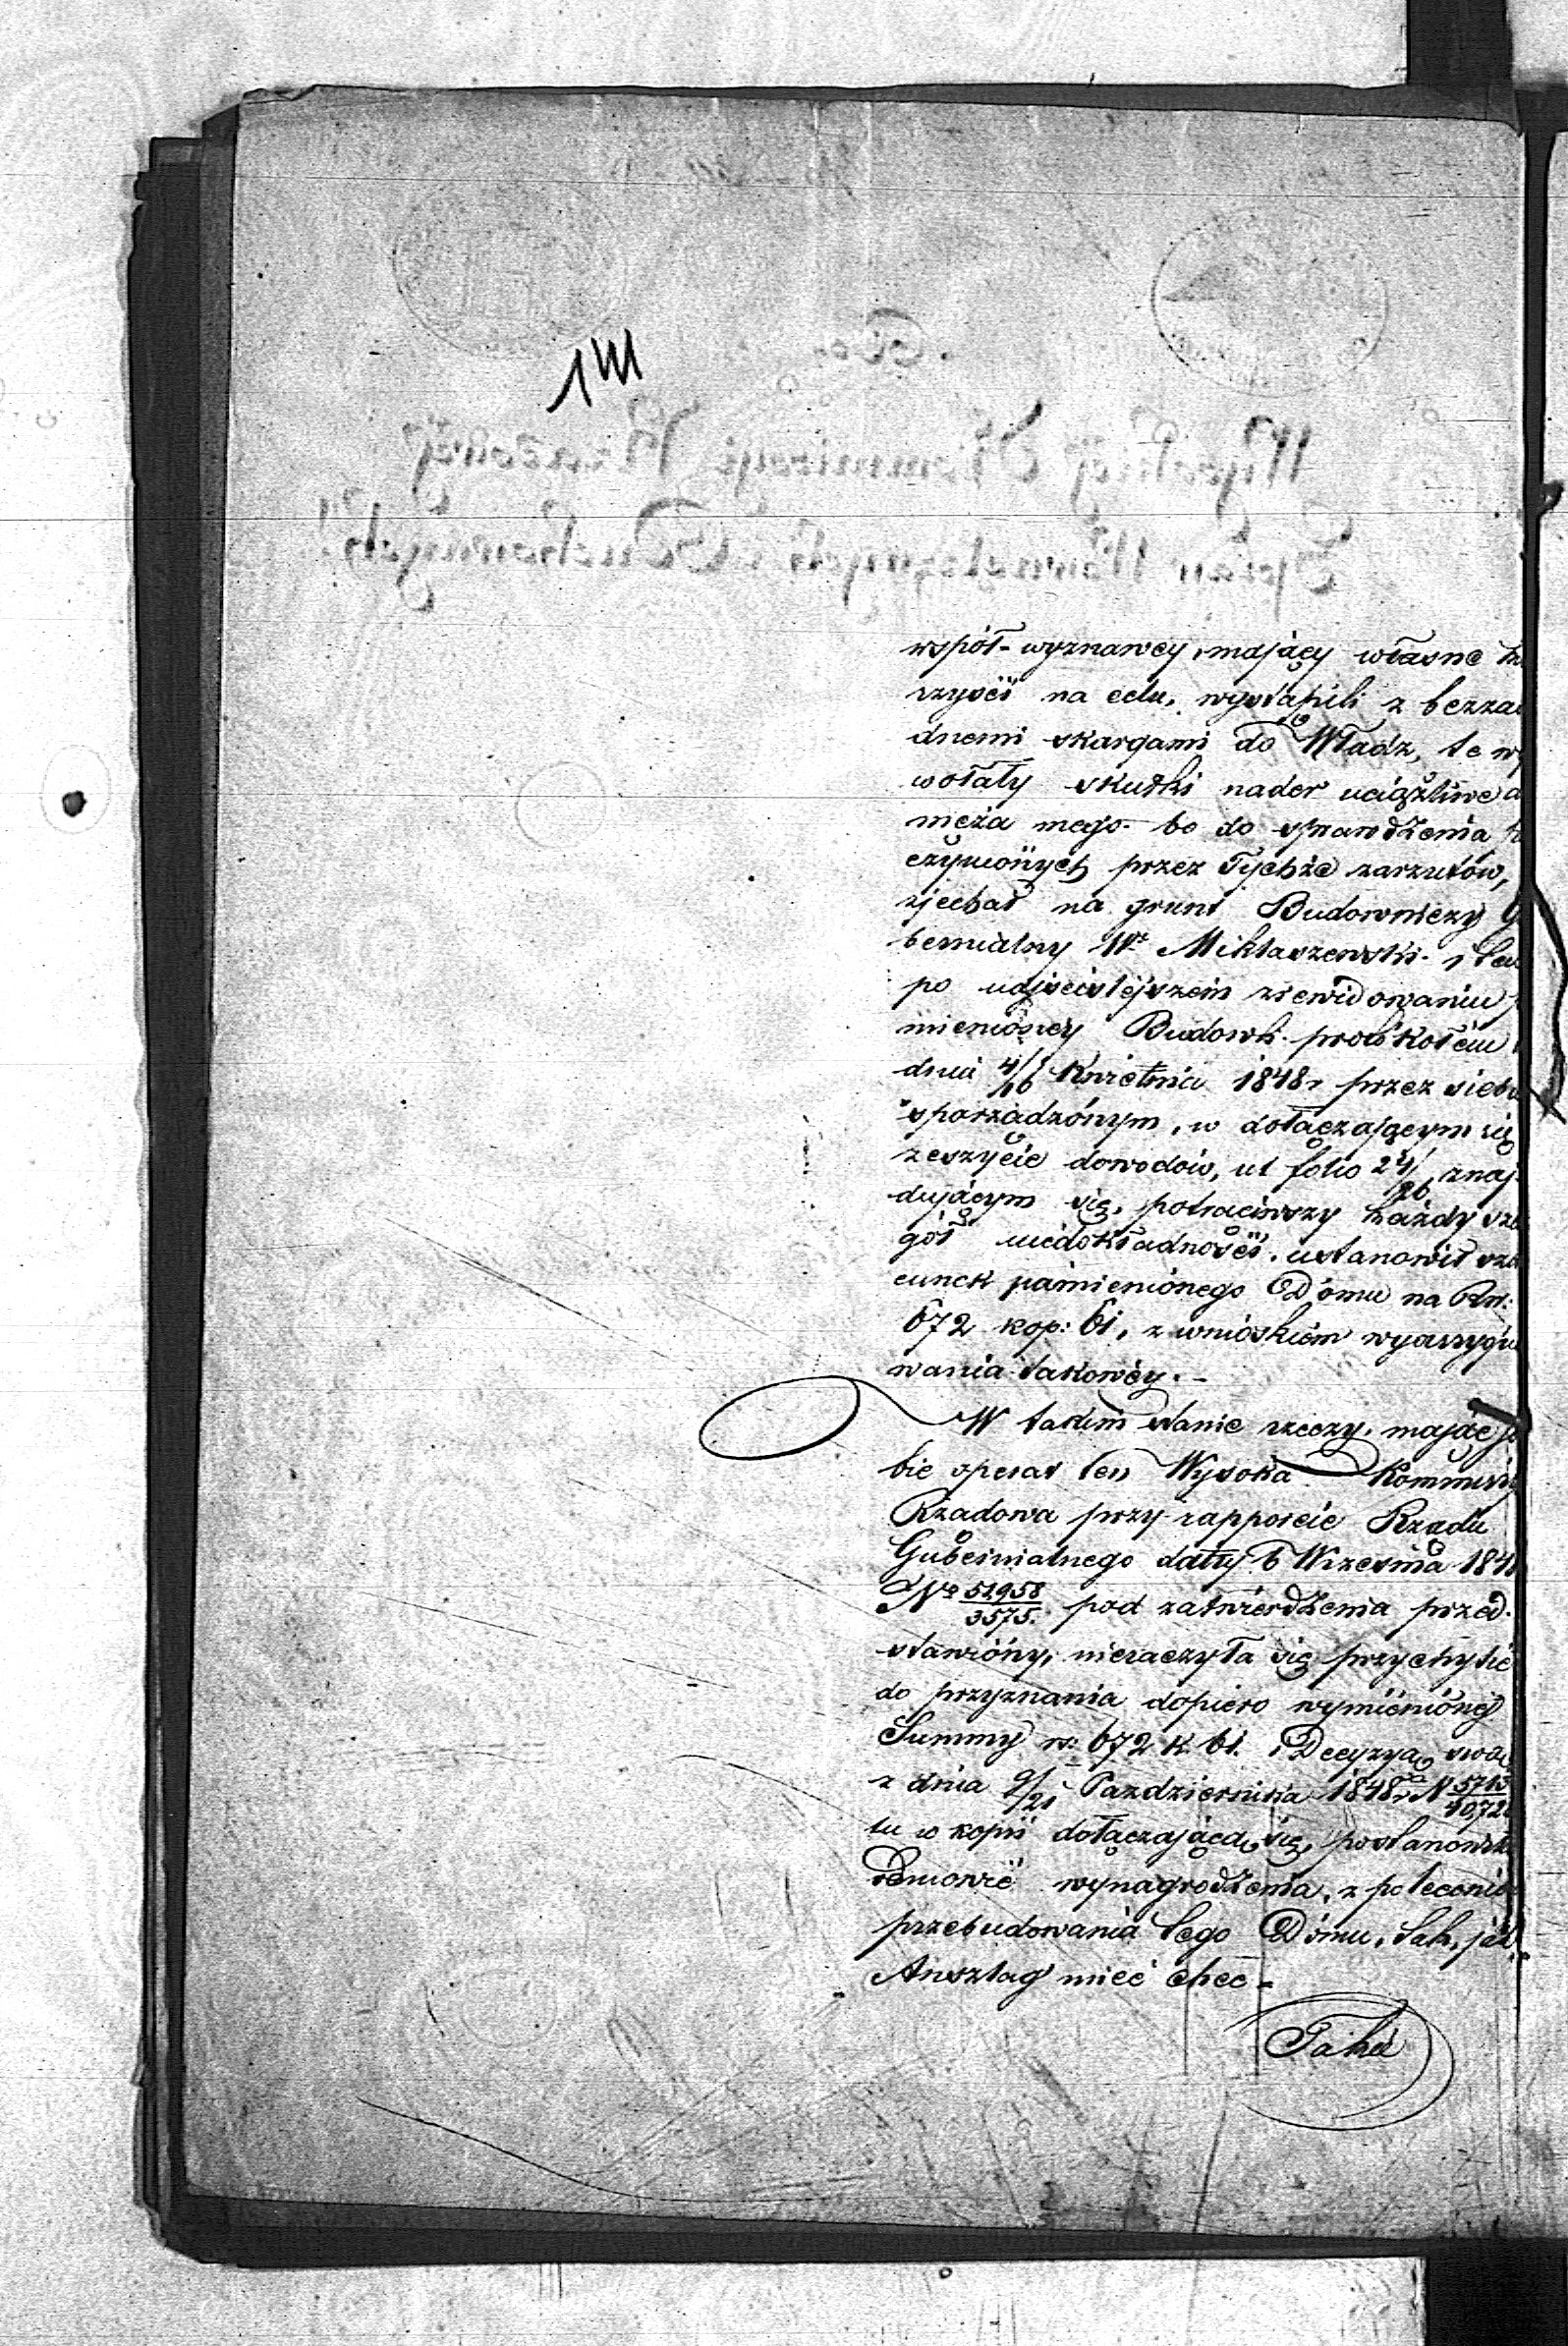 141
współ-wyznawcy, mający własne ko
rzyści na celu, wystąpili z bezzas
dnemi skargami do Władz, te wy
wołały skutki nader uciążliwe d
męża mego - bo do sprawdzenia
czynionych przez Tychże zarzutów,
zjechał na grunt Budowniczy G
bernialny Wy Miklaszewski - i ten
po najściślejszem zrewidowaniu
mienionéy Budowli - protokółem
dnia 4/16 Kwietnia 1848 r przez siebie
sporządzónym, w dołączającym się
zeszycie dowodów, ut folio 24/26 znaj-
dującym się, potrąciwszy każdy szcze
gół niedokładności, ustanowił sza
cunek pamieniónego Dómu na Rs:
672 kop: 61, z wnioskiem wyassygno
wania takowéy. -
W takim stanie rzeczy, mając so
bie operat ten Wysoka Kommissy
Rządowa przy rapporcie Rządu
Gubernialnego datty 6 Września 184
No 52958/3575. pod zatwierdzenia przed-
stawióny, nieraczyła się przychylić
do przyznania dopiero wymienionéj
Summy rs: 672 k. 61. i Decyzyą swoą
z dnia 9/21 Pazdziernika 1848 r N 5713/40,72
tu w kopii dołączającą się, postanowiła
odmówić wynagrodzenia, z poleceniem
przebudowania tego Dómu, tak, jak
Anszlag mieć chce -
Taka